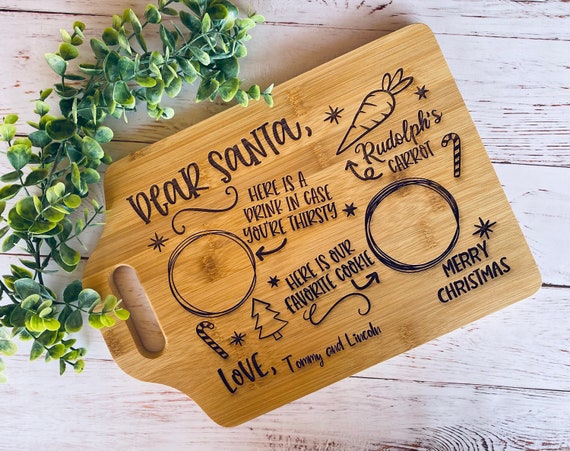 DEAR SANTA,
HERE IS A
DRINK IN CASE
YOU'RE THIRSTY
Rudolph's
CARROT
HERE IS OUR
FAVORITE COOKIE
MERRY
CHRISTMAS
LOVE, Tommy and Lincoln